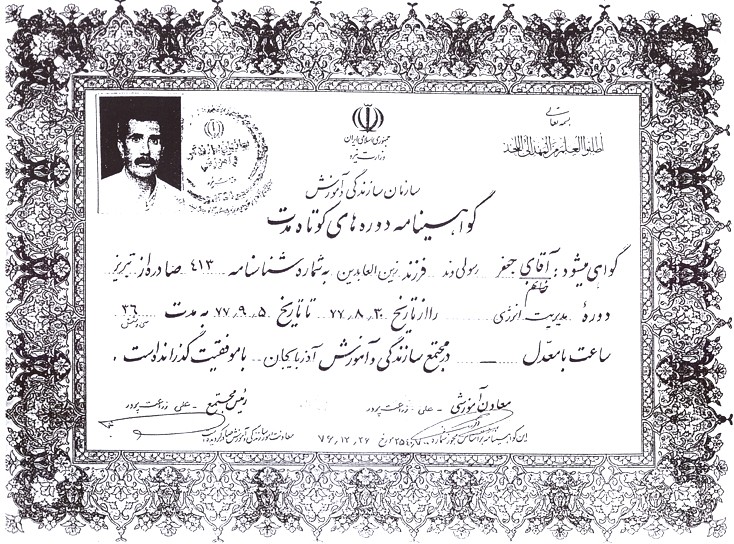 بسمه تعالی
اطلبوا العلم من المهد الی اللحد
جمهوری اسلامی ایران
وزارت نیرو
سازمان سازندگی و آموزش
گواهینامه دوره های کوتاه مدت
گواهی میشود: آقای جعفر رسولی وند فرزند زین العابدین به شماره شناسنامه ۴۱۳ صادره از تبریز
خانم
دورهٔ مدیریت انرژی را از تاریخ ۷۷٫۸٫۳۰ تا تاریخ ۷۷٫۹٫۵ به مدت ۳۶
سی و شش
ساعت با معدل ــ در مجتمع سازندگی و آموزش آذربایجان با موفقیت گذرانده است.
معاون آموزشی ـ علی زراعت پرور
رئیس مجتمع ـ علی زراعت پرور
این گواهینامه براساس مجوز شماره مورخ ۷۶٫۱۲٫۲۶ معاونت امور سازندگی و آموزش صادر گردیده است